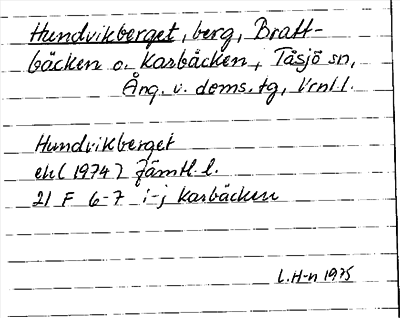 Hundvikberget, berg, Bratt-
bäcken o. Karbäcken, Tåsjö sn,
Ång. v. doms. tg, Vrnl l.
Hundvikberget
ek (1974) Jämtl. l.
21 F 6-7 i-j Karbäcken
L. H-n 1975